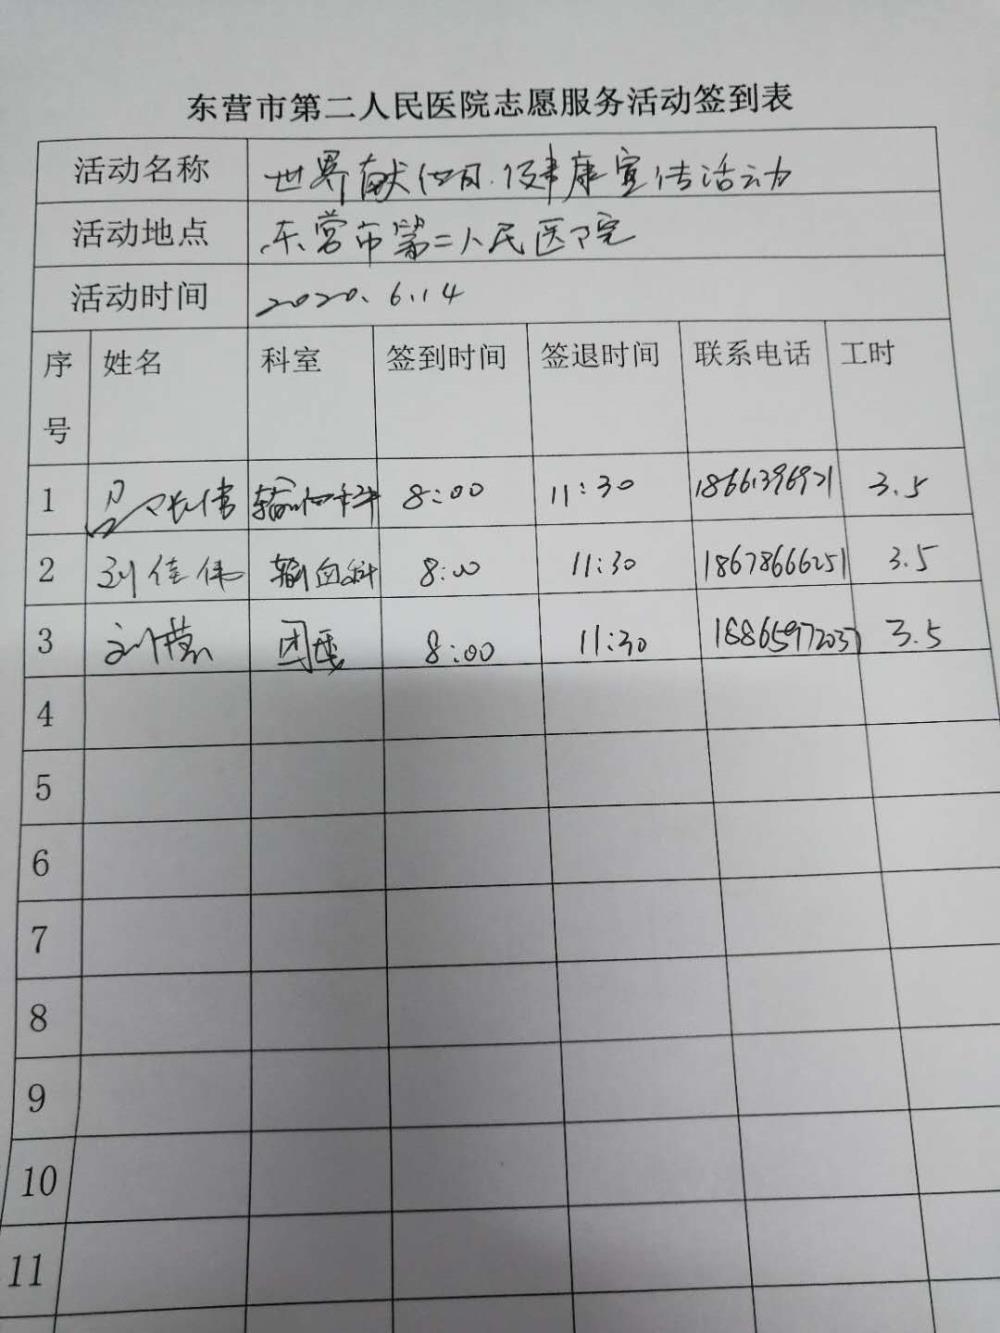 东营市第二人民医院志愿服务活动签到表
活动名称 世界献血日健康宣传活动
活动地点 东营市第二人民医院
活动时间 2020.6.14
序号 姓名 科室 签到时间 签退时间 联系电话 工时
1 输血科 8:00 11:30 18661396921 3.5
2 刘佳伟 输血科 8:00 11:30 18678666251 3.5
3 刘营 团委 8:00 11:30 18865977037 3.5
4
5
6
7
8
9
10
11